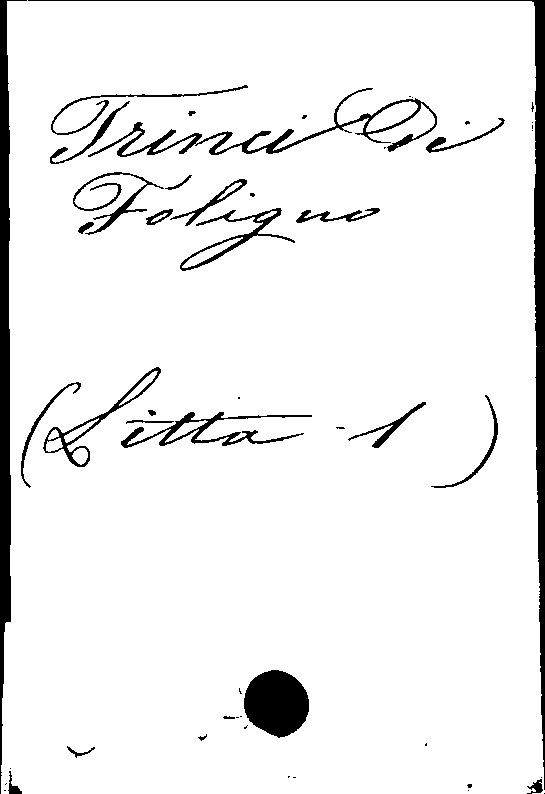 Trinci Di
Foligno
(Litta - 1)